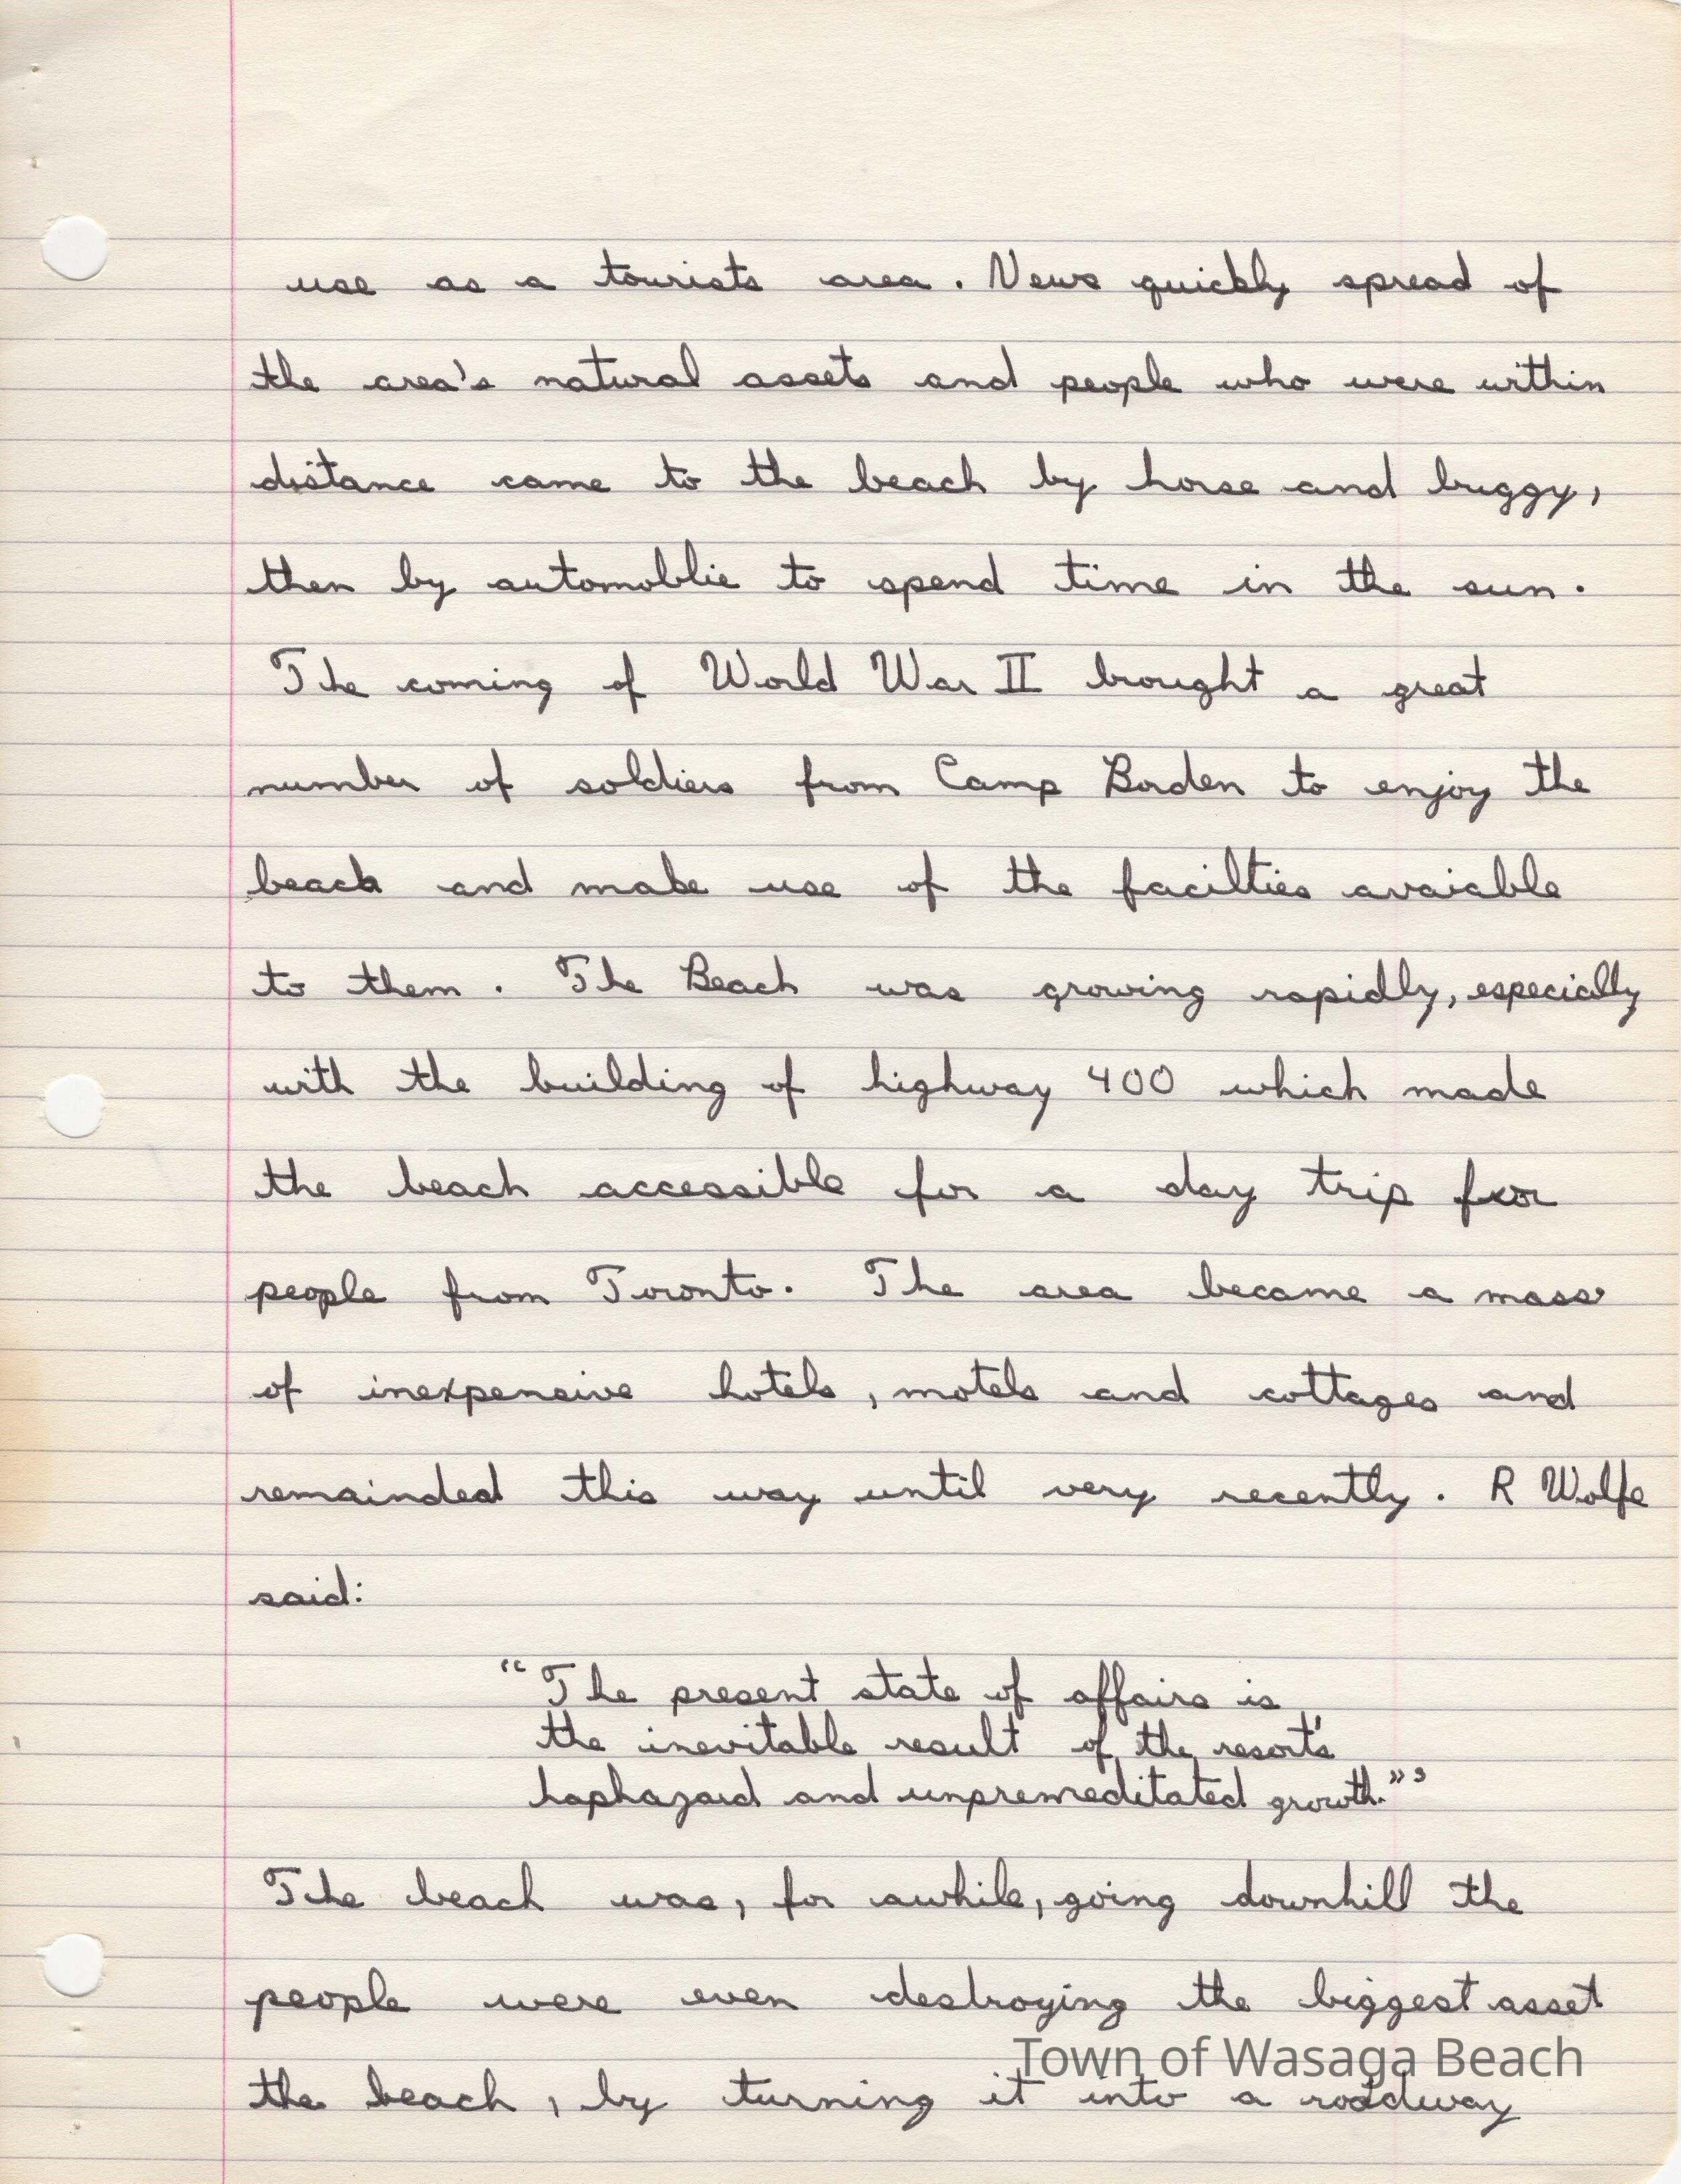 use as a tourists area. News quickly spread of
the area's natural assets and people who were within
distance came to the beach by horse and buggy,
then by automoblie to spend time in the sun.
The coming of World War II brought a great
number of soldiers from Camp Borden to enjoy the
beach and make use of the facilties avaiable
to them. The Beach was growing rapidly, especially
with the building of highway 400 which made
the beach accessible for a day trip for
people from Toronto. The area became a mass
of inexpensive hotels, motels and cottages and
remainded this way until very recently. R Wolfe
said:
"The present state of affairs is
the inevitable result of the resort's
haphazard and unpremeditated growth."³
The beach was, for awhile, going downhill the
people were even destroying the biggest asset
Town of Wasaga Beach
the beach, by turning it into a roadway